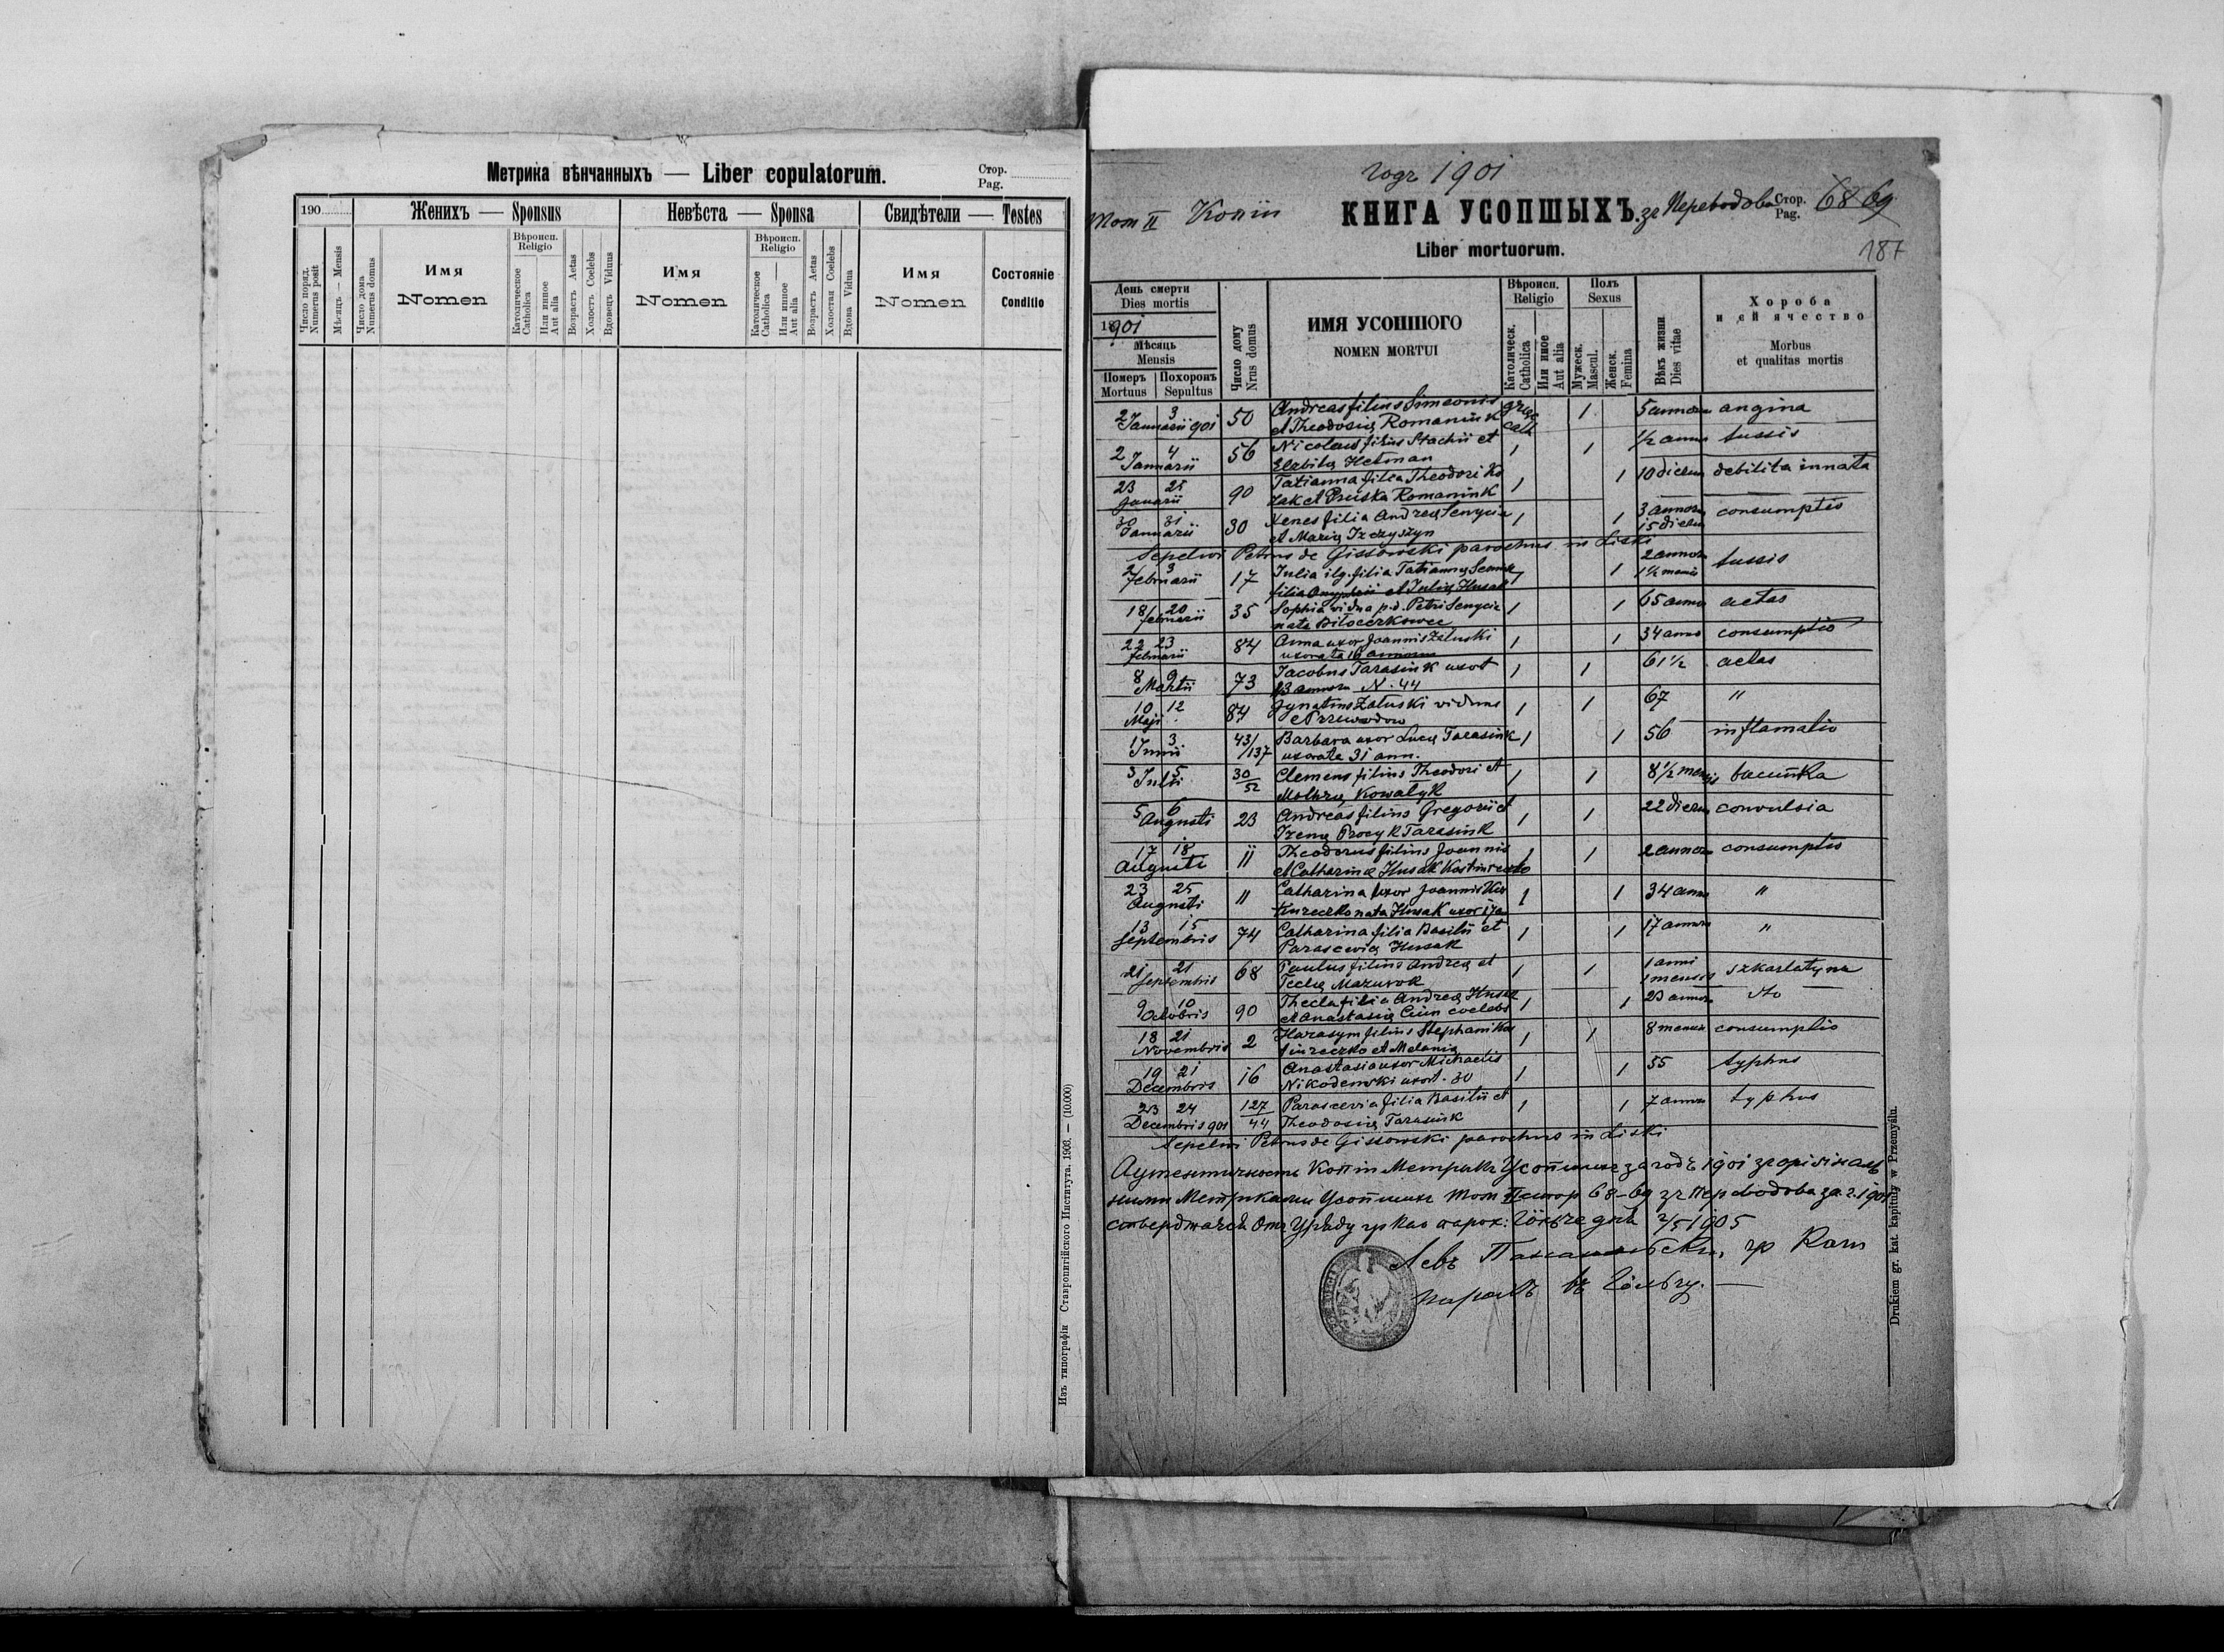 Метрика вѣнчанныхъ — Liber copulatorum.
Стор.
Pag.
190
Женихъ — Sponsus
Невѣста — Sponsa
Свидѣтели — Testes
Число поряд.
Numerus posit
Мѣсяцъ — Mensis
Число дома
Numerus domus
Имя
Nomen
Вѣроисп.
Religio
Католическое
Catholica
Или инное
Aut alia
Возрастъ Aetas
Холостъ Coelebs
Вдовецъ Viduus
Имя
Nomen
Вѣроисп.
Religio
Католическое
Catholica
Или инное
Aut alia
Возрастъ Aetas
Холостая Coelebs
Вдова Vidua
Имя
Nomen
Состояніе
Conditio
Изъ типографіи Ставропигійского Института. 1906. — (10.000)
годъ 1901
Том II Копіи
КНИГА УСОПШЫХЪ. зъ Переводова Стор. Pag. 68 69
Liber mortuorum.
187
День смерти
Dies mortis
1901
Мѣсяць
Mensis
Померъ
Mortuus
Похоронъ
Sepultus
Число дому
Nrus domus
ИМЯ УСОПШОГО
NOMEN MORTUI
Вѣроисп.
Religio
Католическ.
Catholica
Или иное
Aut alia
Полъ
Sexus
Мужеск.
Mascul.
Женск.
Femina
Вѣкъ жизни
Dies vitae
Хороба
и єй ячество
Morbus
et qualitas mortis
2 3 Januarii 901 50 Andreas filius Simeonis grec 1 5 annorum angina
et Theodosia Romaniuk cath
2 4 Januarii 56 Nicolaus filius Stachii et 1 1 1/2 anni tussis
Elzbita Hetman
23 25 Januarii 90 Tatianna filia Theodori Ko 1 1 10 dierum debilita innata
zak et Pruiska Romaniuk
30 31 Januarii 30 Xenes filia Andrea Senycia 1 1 3 annorum consumptio
et Maria 15 dierum
Sepelivi Petrus de Gissowski parochus in Liski
2 3 Februarii 17 Julia ilg. filia Tatianna 1 1 2 annorum tussis
filia et Julia Husak 1 1/2 mensis
18 20 februarii 35 Sophia vidua p.d. Petri Senycia 1 1 65 annor aetas
nata Bilocerkowec
22 23 februarii 84 Anna uxor Joannis Zaluski 1 1 34 anno consumptio
uxorata 16 annorum
8 9 Martii 73 Jacobus Tarasiuk uxor 1 1 61 1/2 aetas
13 annorum N. 44
10 12 Maji 84 Ignatius Zaluski viduus 1 1 67 "
e Przewodow
1 3 Junii 43/137 Barbara uxor Luca Tarasiuk 1 1 56 inflamatio
uxorata 31 ann.
3 5 Julii 30/52 Clemens filius Theodori et 1 1 8 1/2 mensis
Kowalyk
5 6 Augusti 23 Andreas filius Gregorii et 1 1 22 dierum convulsia
Irena Procyk Tarasiuk
17 18 Augusti 11 Theodorus filius Joannis 1 1 2 annorum consumptio
et Catharina Husak
23 25 Augusti 11 Catharina uxor Joannis 1 1 34 anno "
nata Husak uxor 17 a
13 15 Septembris 74 Catharina filia Basilii et 1 1 17 annorum "
Parascevia Husak
21 21 Septembris 68 Paulus filius Andrea et 1 1 1 anni szkarlatyna
Tecla Mazurok 1 mensis
9 10 Octobris 90 Thecla filia Andrea Husak 1 1 23 annorum dto
et Anastasia coelebs
18 21 Novembris 2 Harasym filius Stephani 1 1 8 mensis consumptio
et Melania
19 21 Decembris 16 Anastasia uxor Michaelis 1 1 55 typhus
Nikodemski uxort. 30
23 24 Decembris 901 127/44 Parascevia filia Basilii et 1 1 7 annorum typhus
Theodosia Tarasiuk
Sepelivi Petrus de Gissowski parochus in Liski
Аутентичность Копіи Метрикъ Усопшихъ за годъ 1901 зъ оригіналь
ными Метриками Усопшихъ Том II стор 68-69 зъ Переводова за г. 1901
стверджаєся Отъ Уряду гр кат парох: дня 2/5 1905
Левъ гр Кат
парохъ въ
Drukiem gr. kat. kapituły w Przemyślu.